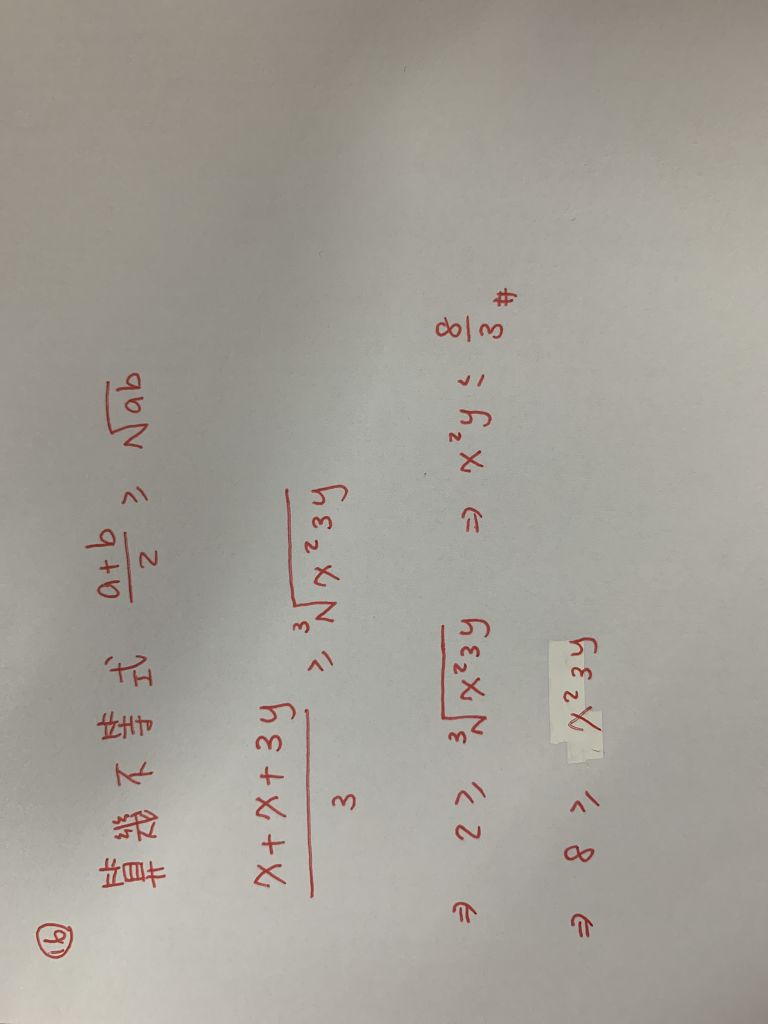 16
算幾不等式 (a+b)/2 ≥ √ab
(x+x+3y)/3 ≥ ³√x²3y
⇒ 2 ≥ ³√x²3y ⇒ x²y ≤ 8/3 #
⇒ 8 ≥ x²3y